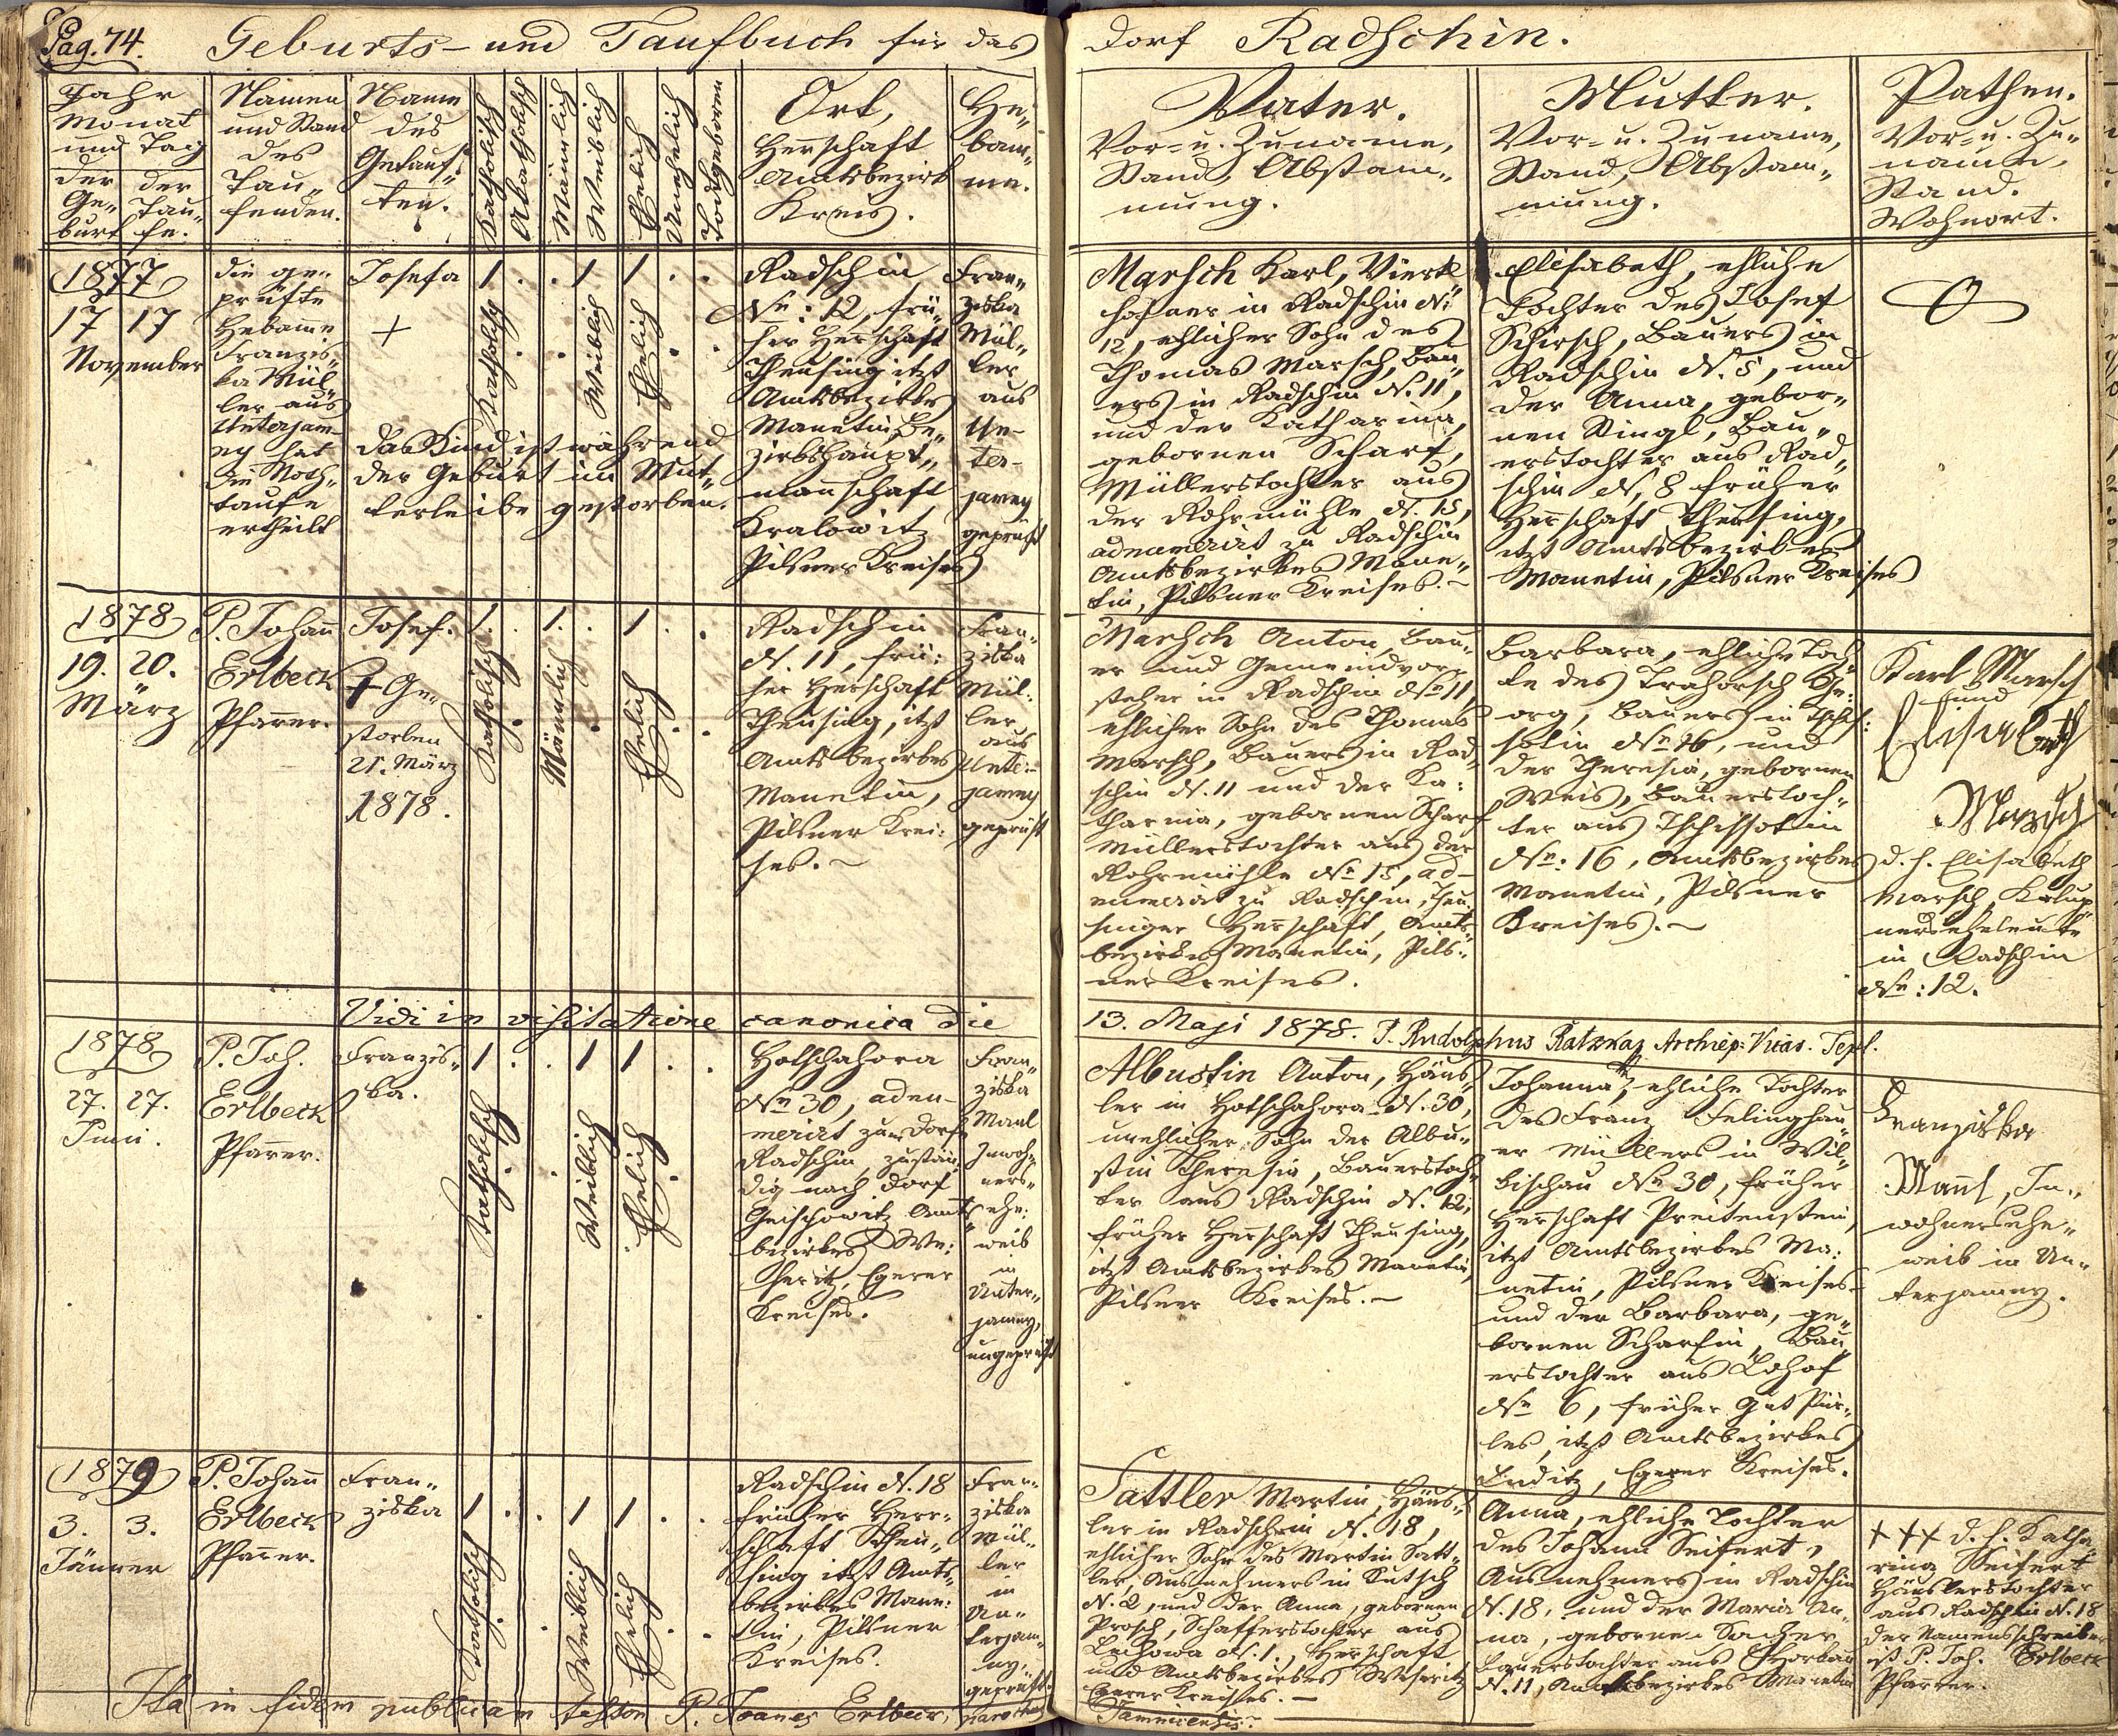 Pag. 74. Geburts- und Taufbuch für das Dorf Radschin.
Jahr
Monat
und Tag
der Ge-
burt
der
Tau-
fe.
Namen
und Stand
des
Tau-
fenden.
Name
des
Getauf-
ten.
Katholisch
Akatholisch
Männlich
Weiblich
Ehelich
Unehelich
Todtgeboren
Ort,
Herrschaft
Amtsbezirk
Kreis.
He-
bam-
me.
Vater.
Vor- u. Zuname,
Stand, Abstam-
mung.
Mutter.
Vor- u. Zuname,
Stand, Abstam-
mung.
Pathen.
Vor- u. Zu-
namen,
Stand.
Wohnort.
1877
17 17
November
die ge-
prüfte
Hebamme
Franzis-
ka Mül-
ler aus
Unterjam-
ny hat
die Noth-
taufe
ertheilt
Josefa
+
Das Kind ist während
der Geburt im Mut-
terleibe gestorben.
1 . . 1 1 . .
Katholisch
Weiblich
Ehelich
Radschin
No: 12, frü-
her Herrschaft
Theusing itzt
Amtsbezirkes
Manetin, Be-
zirkshaupt-
mannschaft
Kralowitz
Pilsner Kreises
Fran-
ziska
Mül-
ler
aus
Un-
ter-
jamny
geprüft
Marsch Karl, Viertl
hofner in Radschin No
12, ehlicher Sohn des
Thomas Marsch, Bau-
ers in Radschin N. 11,
und der Katharina,
gebornen Scharf,
Müllerstochter aus
der Rohrmühle N. 15,
adnumerirt zu Radschin
Amtsbezirkes Mane-
tin, Pilsner Kreises.-
Elisabeth, ehliche
Tochter des Josef
Schirsch, Bauers in
Radschin N. 5, und
der Anna, gebor-
nen Stingl, Bau-
erstochter aus Rad-
schin N. 8 früher
Herrschaft Theusing,
itzt Amtsbezirkes
Manetin, Pilsner Kreises
1878
19. 20.
März
P. Johann
Erlbeck
Pfarrer.
Josef.
+ Ge-
storben
21. März
1878.
1 . 1 . 1 . .
Katholisch
Männlich
Ehelich
Radschin
N. 11, frü-
her Herrschaft
Theusing, itzt
Amtsbezirkes
Manetin,
Pilsner Krei-
ses.-
Fran-
ziska
Mül-
ler
aus
Unter-
jamny
geprüft
Marsch Anton, Bau-
er und Gemeindvor-
steher in Radschin No 11,
ehlicher Sohn des Thomas
Marsch, Bauers in Rad-
schin N. 11 und der Ka-
tharina, gebornen Scharf
Müllerstochter aus der
Rohrmühle No 15, ad-
numerirt zu Radschin, Theu-
singer Herrschaft, Amts-
bezirkes Manetin, Pils-
ner Kreises.
Barbara, ehliche Toch-
te des Trahorsch Ge-
org, Bauers in
No 16, und
der Theresia, gebornen
Weis, Bauerstoch-
ter aus Tschissotin
No: 16, Amtsbezirkes
Manetin, Pilsner
Kreises.-
Karl Marsch
und
Elisabeth
Marsch
d. h. Elisabeth
Marsch,
in Radschin
No: 12.
Vidi in visitatione canonica die 13. Maji 1878. P. Rudolphus Archiep: Vicar. Tepl.
1878
27. 27.
Juni.
P. Joh.
Erlbeck
Pfarrer.
Franzis-
ka.
1 . . 1 1 . .
Katholisch
Weiblich
Ehelich
Hotschahora
No 30, adnu-
merirt zum Dorf
Radschin, zustän-
dig nach Dorf
Geischowitz Amts
bezirkes We-
seritz, Egerer
Kreises.
Fran-
ziska
Manl
Inwoh-
ners-
ehe-
weib
in
Unter-
jamny,
ungeprüft
Albustin Anton, Häus-
ler in Hotschahora N. 30,
unehlicher Sohn der Albu-
stin Theresia, Bauerstoch-
ter aus Radschin N. 12,
früher Herrschaft Theusing,
itzt Amtsbezirkes Manetin,
Pilsner Kreises.-
Johanna, ehliche Tochter
des Franz Felinghau-
er Müllers in Wil-
kischau No 30, früher
Herrschaft Preitenstein,
itzt Amtsbezirkes Ma-
netin, Pilsner Kreises-
und der Barbara, ge-
bornen Scharfin, Bau-
erstochter aus Lohof
No 6, früher Gut Pür-
les, itzt Amtsbezirkes
Luditz, Egerer Kreises.
Franziska
Manl, In-
wohnersehe-
weib in Un-
terjamny.
1879
3. 3.
Jänner
P. Johann
Erlbeck
Pfarrer.
Fran-
ziska
1 . . 1 1 . .
Katholisch
Weiblich
Ehelich
Radschin N. 18
früher Herr-
schaft Theu-
sing itzt Amts-
bezirkes Mane-
tin, Pilsner
Kreises.
Fran-
ziska
Mül-
ler
in
Un-
terjam-
ny,
geprüft.
Sattler Martin, Häus-
ler in Radschin N. 18,
ehlicher Sohn des Martin Satt-
ler, Ausnehmers in Kutsch
N. 2, und der Anna, gebornen
Prosch, Schafferstochter aus
N. 1., Herrschaft
und Amtsbezirkes Weseritz
Egerer Kreises.-
Anna, ehliche Tochter
des Johann Seifert,
Ausnehmers in Radschin
N. 18, und der Maria An-
na, gebornen Bacher
Bauerstochter aus
N. 11, Amtsbezirkes Manetin
+++ d. h. Katha-
rina Seifert
Häuslerstochter
aus Radschin N. 18
der Namensschreiber
ist P. Joh. Erlbeck
Pfarrer.
Ita in fidem publicam testor P. Joanes Erlbeck, parochus
Jamnensis.